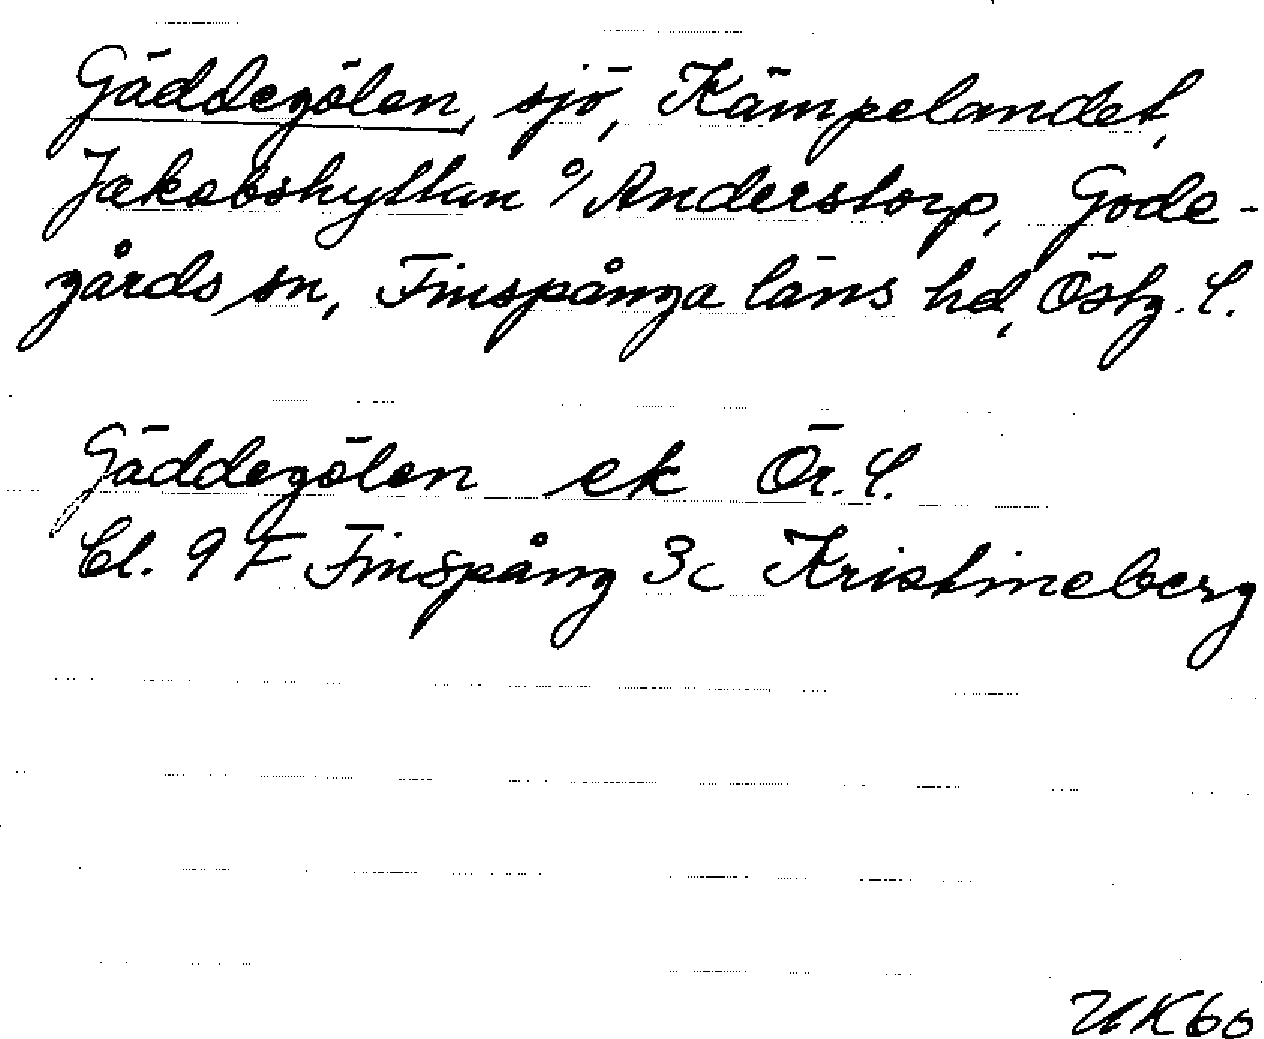 Gäddegölen, sjö, Kämpelandet,
Jakobshyttan o/ Anderstorp, Gode-
gårds sn, Finspånga läns hd, Östg. l.
Gäddegölen ek Ör. l.
bl. 9 F Finspång 3c Kristineberg
UK60